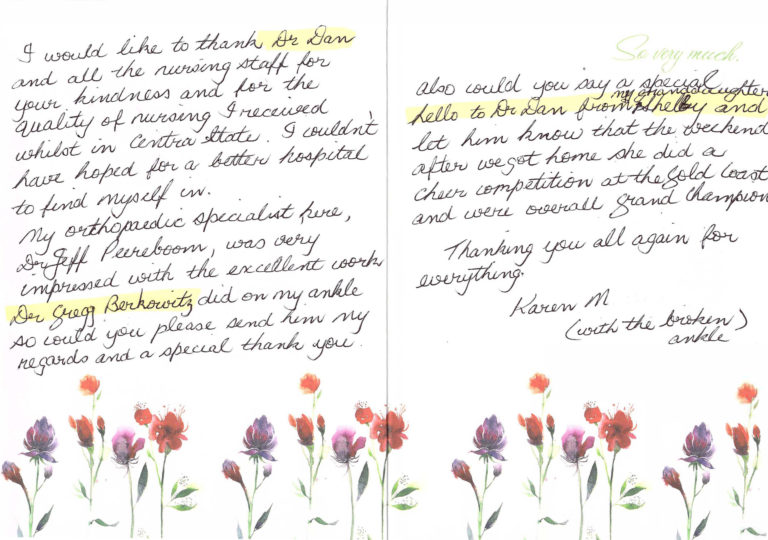 I would like to thank Dr Dan
and all the nursing staff for
your kindness and for the
quality of nursing I received
whilst in Centra State. I couldn't
have hoped for a better hospital
to find myself in.
My orthopaedic specialist here,
Dr Jeff Peereboom, was very
impressed with the excellent work
Dr Gregg Berkowitz did on my ankle
so could you please send him my
regards and a special thank you.
So very much.
also could you say a special
my granddaughter
hello to Dr Dan from Shelby and
let him know that the weekend
after we got home she did a
cheer competition at the Gold Coast
and were overall grand champion
Thanking you all again for
everything.
Karen M
(with the broken)
ankle